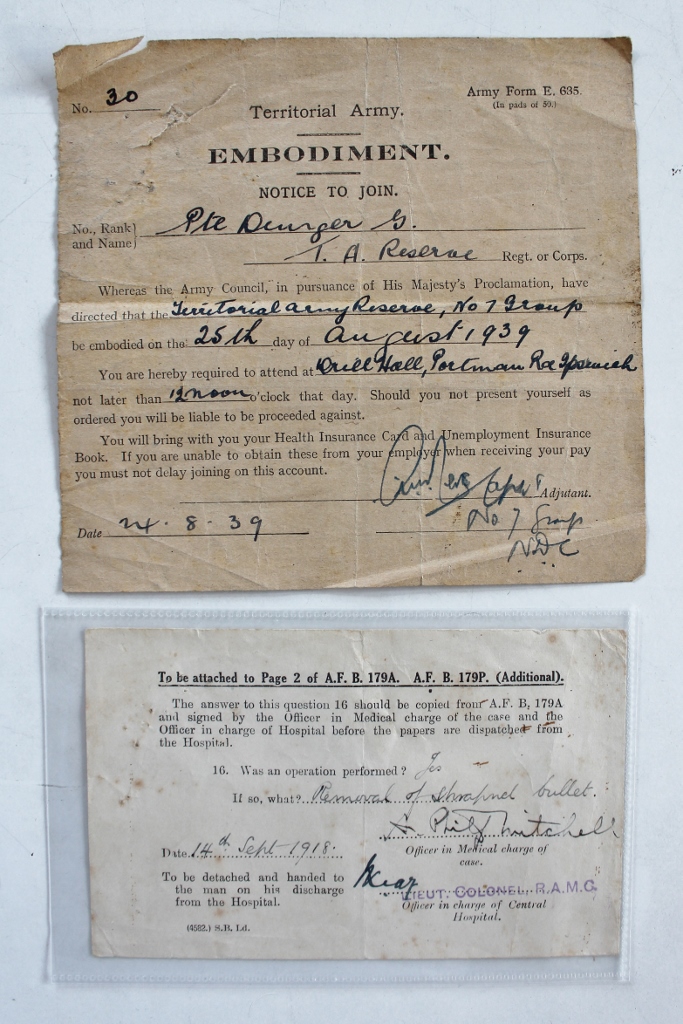 No. 30
Army Form E. 635.
(In pads of 50.)
Territorial Army.
EMBODIMENT.
NOTICE TO JOIN.
No., Rank and Name) Pte Denger G.
T. A. Reserve Regt. or Corps.
Whereas the Army Council, in pursuance of His Majesty's Proclamation, have
directed that the Territorial Army Reserve, No 7 Group
be embodied on the 25th day of August 1939
You are hereby required to attend at Drill Hall, Portman Rd Ipswich
not later than 12 noon o'clock that day. Should you not present yourself as
ordered you will be liable to be proceeded against.
You will bring with you your Health Insurance Card and Unemployment Insurance
Book. If you are unable to obtain these from your employer when receiving your pay
you must not delay joining on this account.
Capt Adjutant.
Date 24.8.39
No 7 Group
NDC
To be attached to Page 2 of A.F. B. 179A. A.F. B. 179P. (Additional).
The answer to this question 16 should be copied from A.F. B, 179A
and signed by the Officer in Medical charge of the case and the
Officer in charge of Hospital before the papers are dispatched from
the Hospital.
16. Was an operation performed? Yes
If so, what? Removal of shrapnel bullet.
Mitchell
Date 14th Sept 1918.
Officer in Medical charge of
case.
To be detached and handed to
the man on his discharge
from the Hospital.
LIEUT. COLONEL, R.A.M.C.
Officer in charge of Central
Hospital.
(4582.) S.B. Ld.